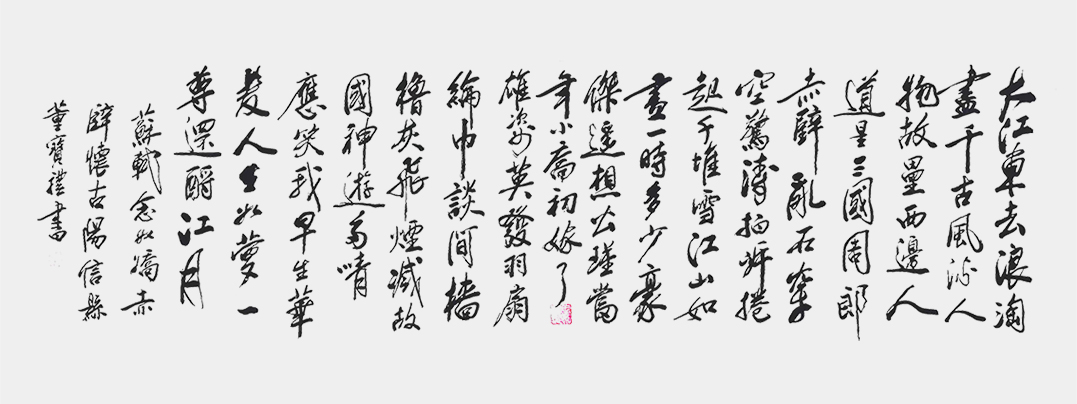 大江東去浪淘
盡千古風流人
物故壘西邊人
道是三國周郎
赤壁亂石穿
空驚濤拍岸捲
起千堆雪江山如
畫一時多少豪
傑遙想公瑾當
年小喬初嫁了
雄姿英發羽扇
綸巾談間檣
櫓灰飛煙滅故
國神遊多情
應笑我早生華
髮人生如夢一
尊還酹江月
蘇軾念奴嬌赤
壁懷古陽信縣
董寶禮書